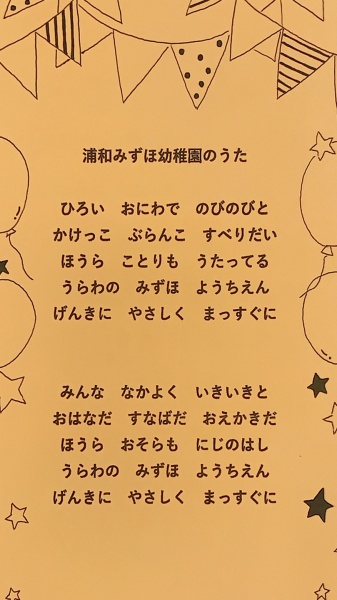 浦和みずほ幼稚園のうた
ひろい　おにわで　のびのびと
かけっこ　ぶらんこ　すべりだい
ほうら　ことりも　うたってる
うらわの　みずほ　ようちえん
げんきに　やさしく　まっすぐに
みんな　なかよく　いきいきと
おはなだ　すなばだ　おえかきだ
ほうら　おそらも　にじのはし
うらわの　みずほ　ようちえん
げんきに　やさしく　まっすぐに